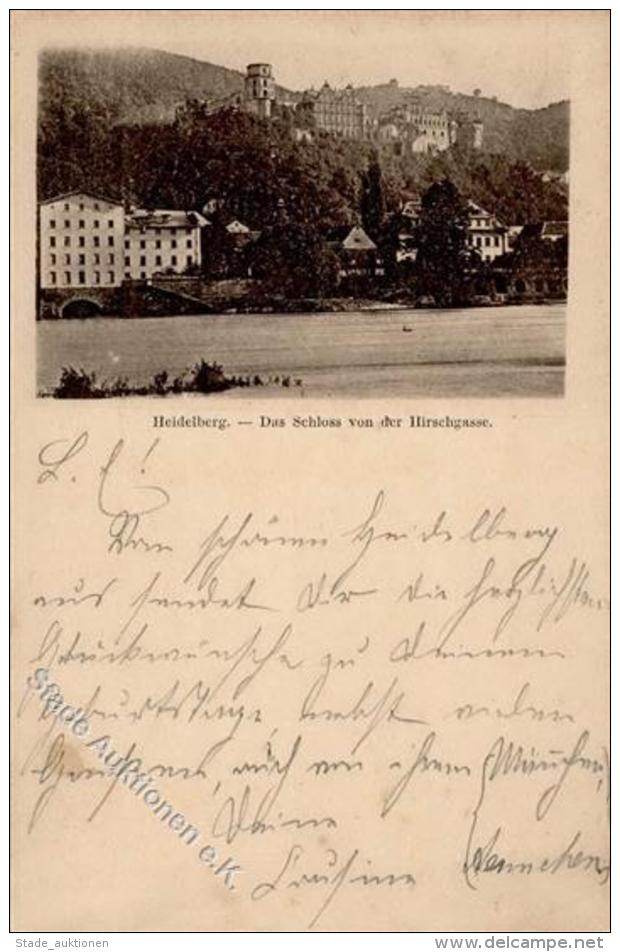 Heidelberg. — Das Schloss von der Hirschgasse.
L. E!
Von schönen Heidelberg
aus sendet Dir die herzlichsten
Glückwünsche zu Deinem
Geburtstage, nebst vielen
Grüssen, auch von ihrem
Deine
Cousine Aennchen
Stade Auktionen e.K.
Stade_auktionen
www.delcampe.net